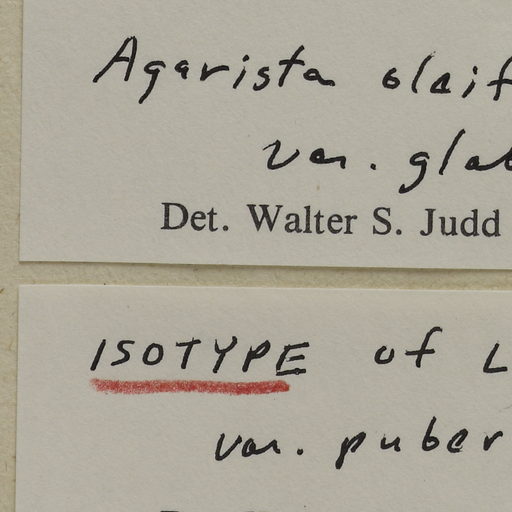 Agarista oleif
var. glab
Det. Walter S. Judd
ISOTYPE of L
var. puber